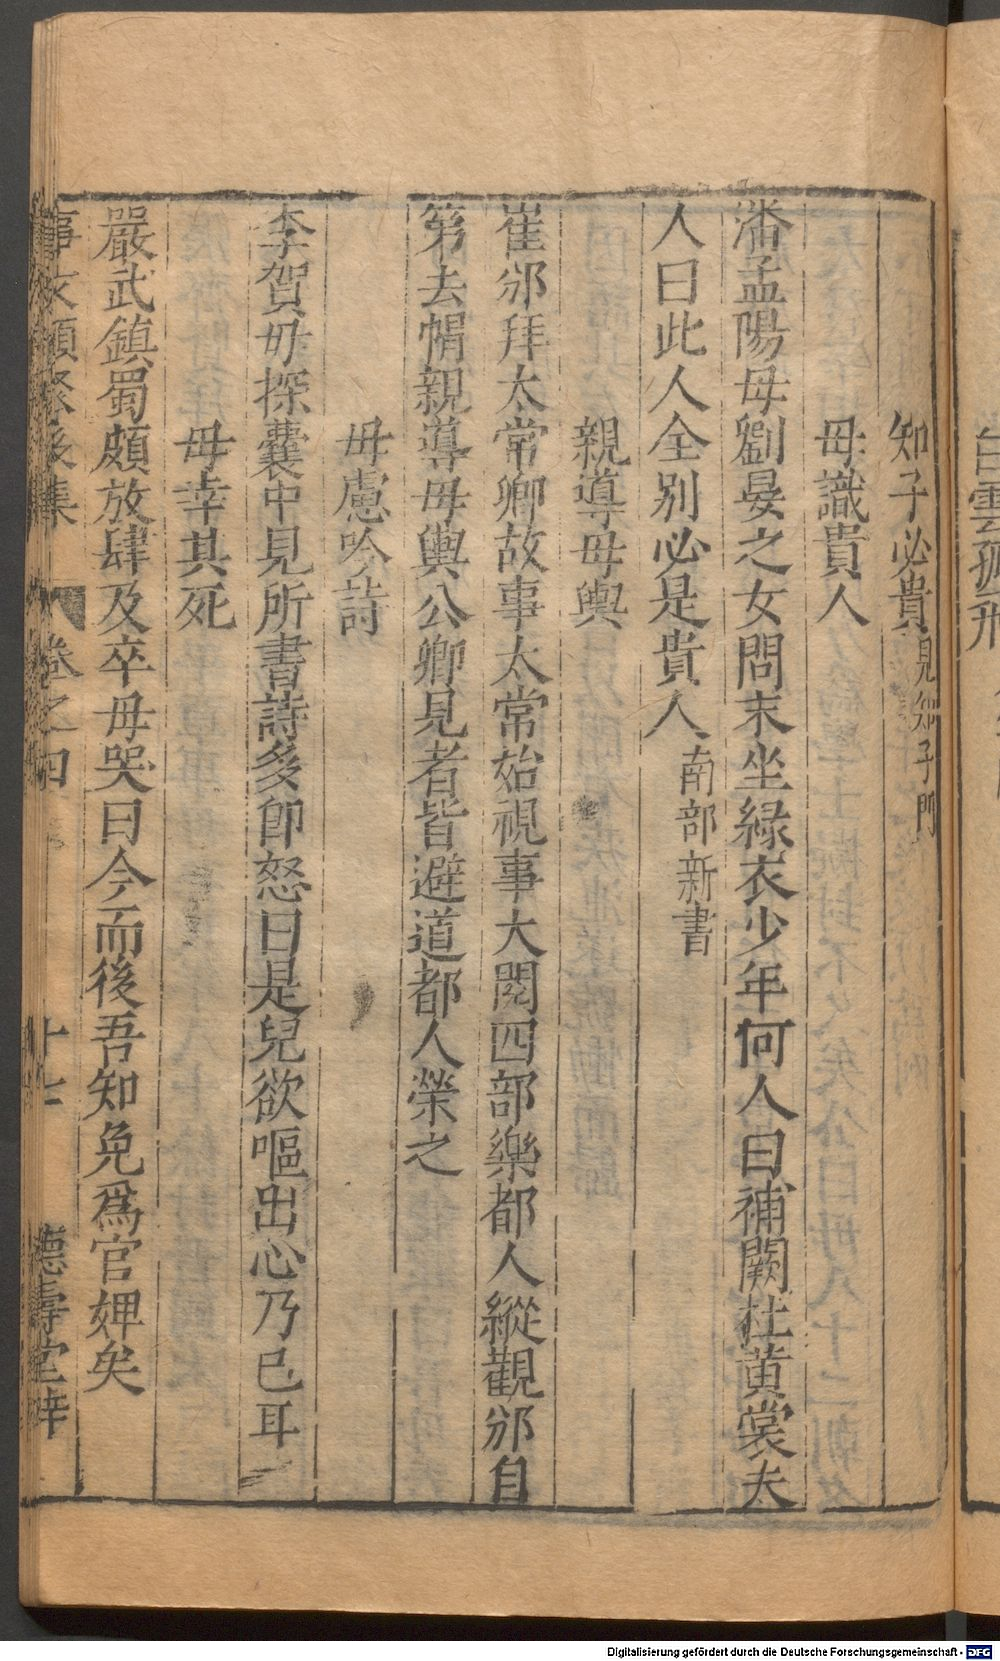 知子必貴見知子門
母識貴人
潘孟陽母劉晏之女問末坐緑衣少年何人曰補闕杜黄裳夫
人曰此人全别必是貴人南部新書
親導母輿
崔邠拜太常卿故事太常始視事大閱四部樂都人縱觀邠自
第去帽親導母輿公卿見者皆避道都人榮之
母慮吟詩
李賀母探囊中見所書詩多卽怒曰是兒欲嘔出心乃已耳
母幸其死
嚴武鎮蜀頗放肆及卒母哭曰今而後吾知免爲官婢矣
事文類聚後集 卷之四 十七 德壽堂梓
白雲孤飛
Digitalisierung gefördert durch die Deutsche Forschungsgemeinschaft - DFG